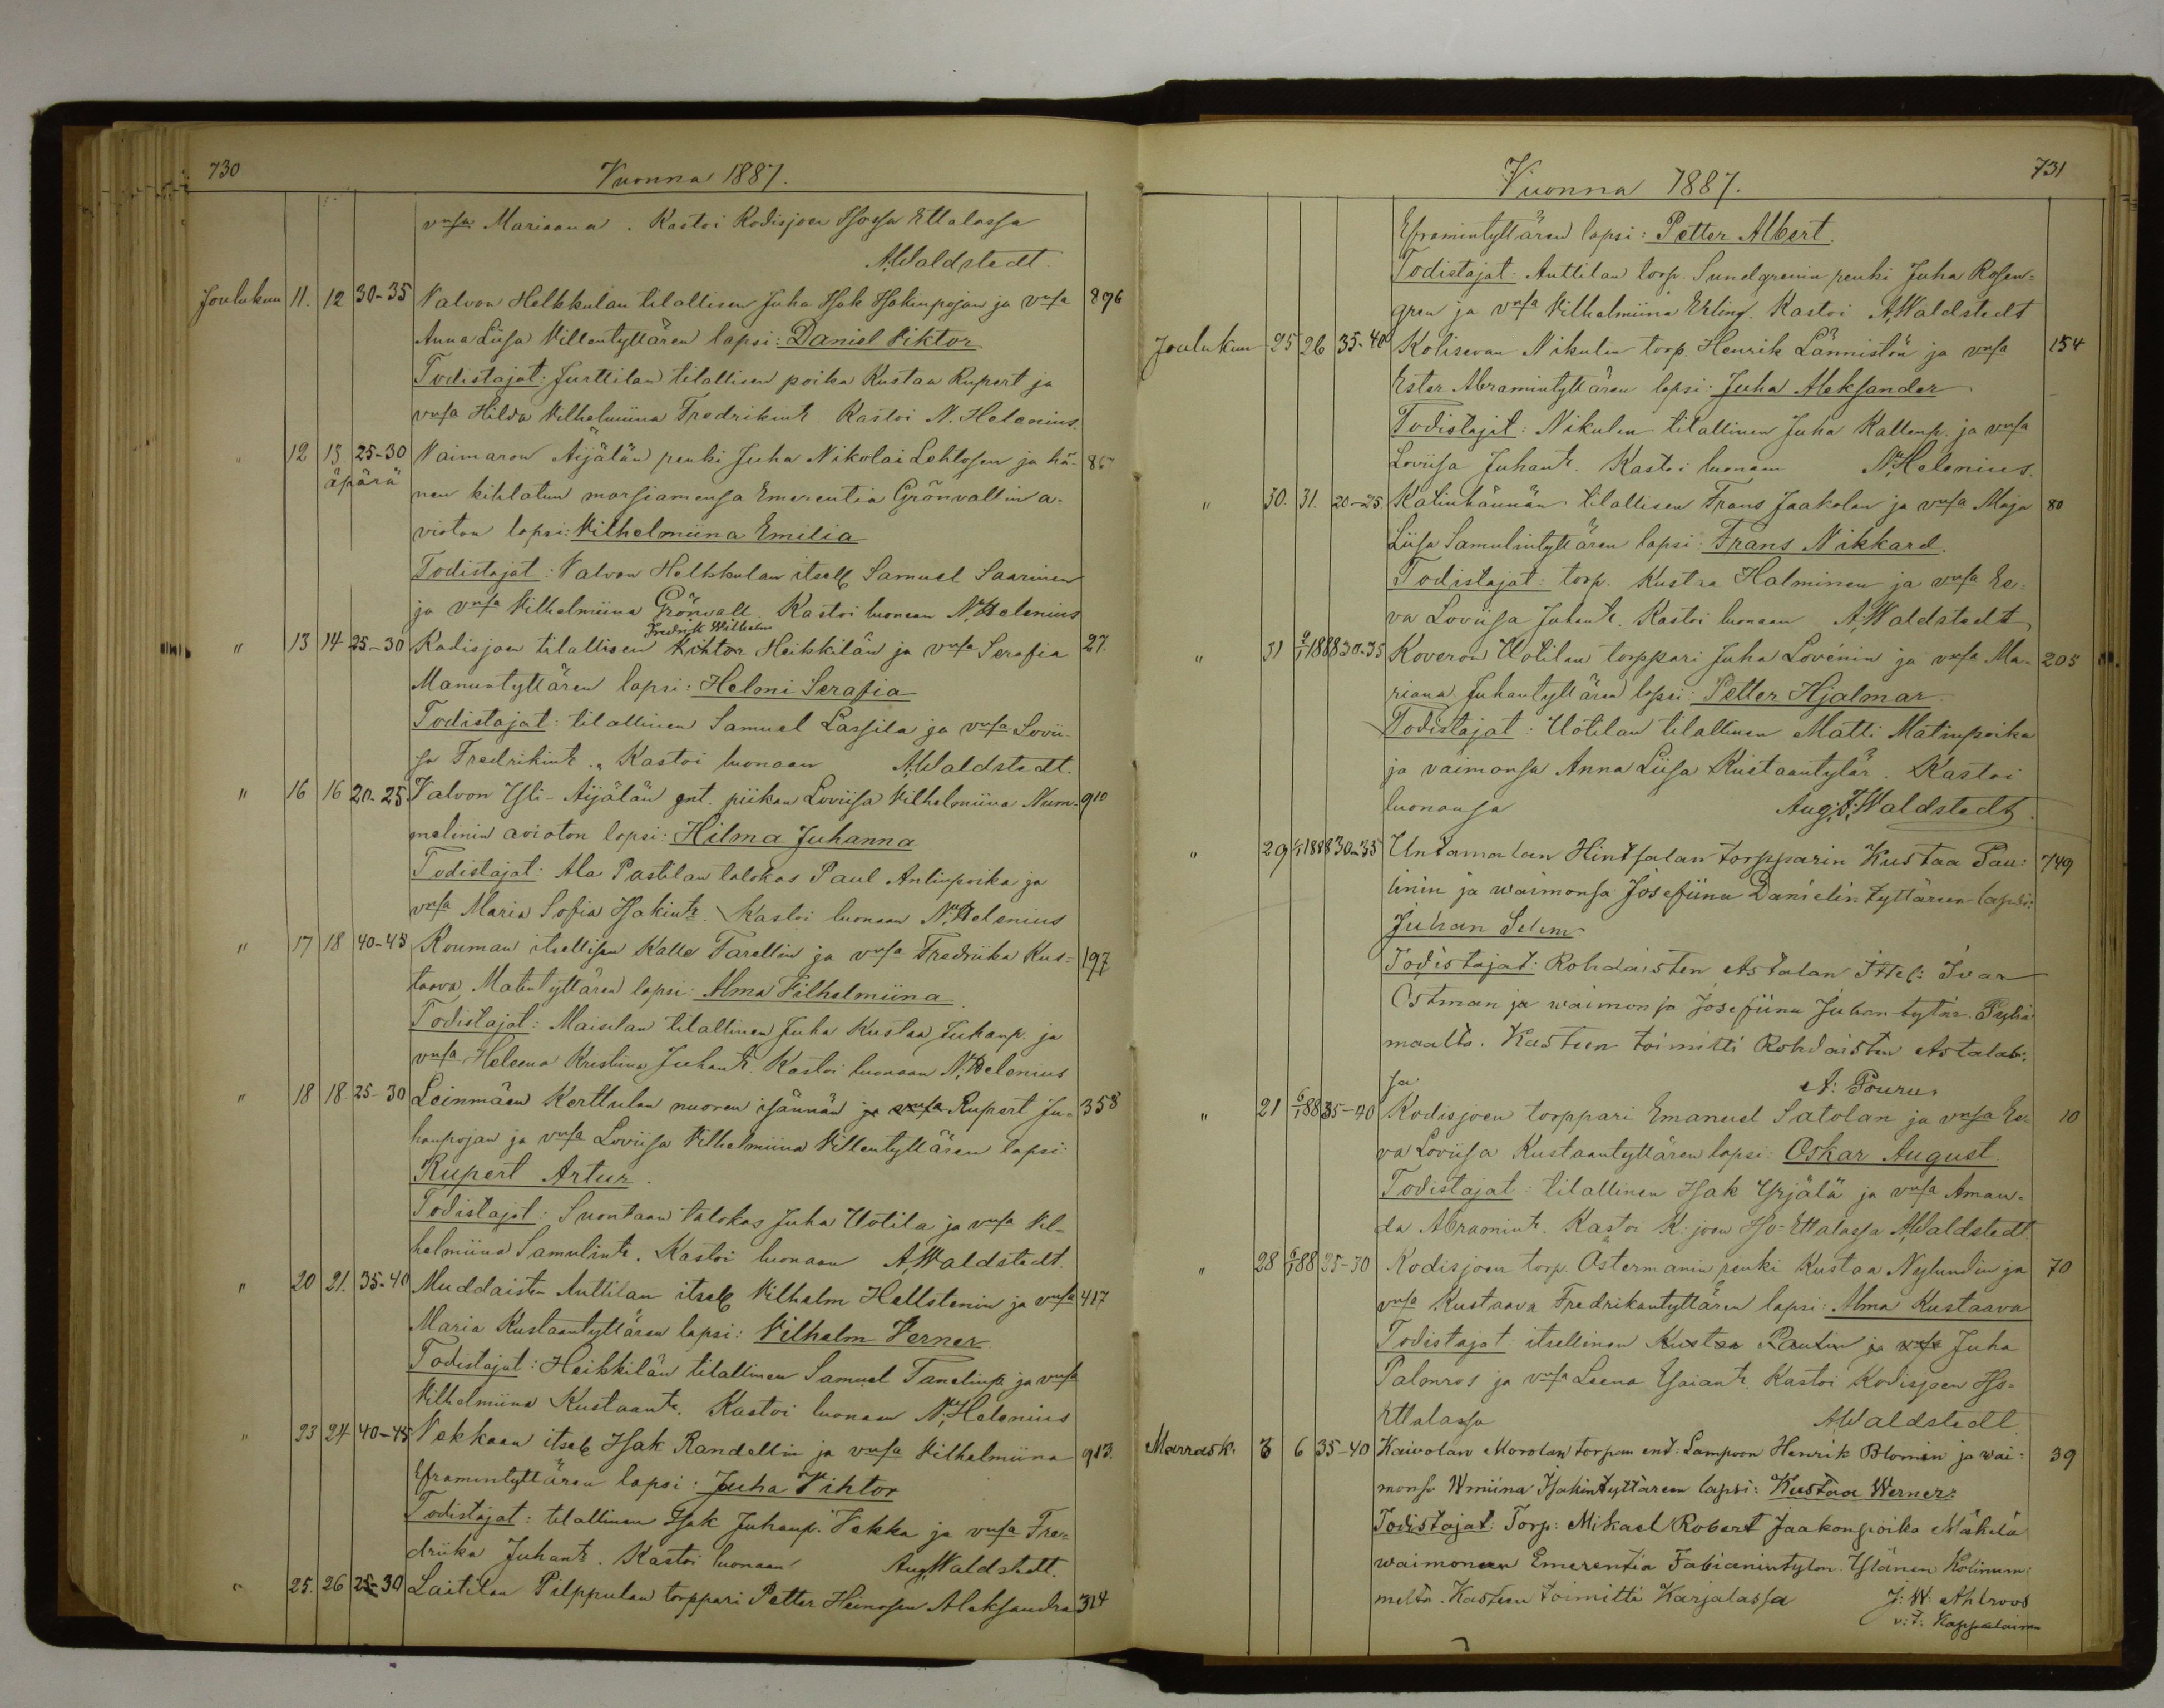 730
Vuonna 1887.
vmsa Mariaana. Kastoi Kodisjoen Isossa Ettalassa
A. Waldstedt.
Joulukuu 11. 12 30-35 Valvon Helkkulan tilallisen Juha Isak Isakinpojan ja vmsa 876
Anna Liisa Villentyttären lapsi: Daniel Viktor
Todistajat: Junttilan tilallisen poika Kustaa Rupert ja
vmsa Hilda Vilhelmiina Fredrikint. Kastoi N. Helenius.
12 13 25-30 Vaimaron Äijälän renki Juha Nikolai Lehtosen ja hä- 85
äpärä
nen kihlatun morsiamensa Emerentia Grönvallin a-
vioton lapsi: Vilhelmiina Emilia
Todistajat: Valvon Helkkulan itsell Samuel Saarinen
ja vmsa Vilhelmiina Grönvall. Kastoi luonaan N. Helenius
Fredrik Wilhelm
" 13 14 25-30 Kodisjoen tilallisen Viktor Heikkilän ja vmsa Serafia 27.
Manuntyttären lapsi: Helmi Serafia
Todistajat: tilallinen Samuel Lassila ja vmsa Lovii-
sa Fredrikint. Kastoi luonaan A. Waldstedt.
" 16 16 20-25 Valvon Yli-Äijälän ent. piikan Loviisa Vilhelmiina Num- 910
melinin avioton lapsi: Hilma Juhanna
Todistajat: Ala Pastilan talokas Paul Antinpoika ja
vmsa Maria Sofia Isakint. Kastoi luonaan N. Helenius
" 17 18 40-45 Kouman itsellisen Kalle Tarellin ja vmsa Fredriika Kus- 197
taava Matintyttären lapsi: Alma Vilhelmiina
Todistajat: Maisilan tilallinen Juha Kustaa Juhanp. ja
vmsa Heleena Kristiina Juhant. Kastoi luonaan N. Helenius
" 18 18 25-30 Leinmäen Kerttulan nuoren isännän ja vmsa Rupert Ju- 358
hanpojan ja vmsa Loviisa Vilhelmiina Villentyttären lapsi:
Rupert Artur.
Todistajat: Suontaan talokas Juha Uotila ja vmsa Vil-
helmiina Samulint. Kastoi luonaan A. Waldstedt.
" 20 21. 35-40 Muddaisten Anttilan itsell Vilhelm Hellstenin ja vmsa 417
Maria Kustaantyttären lapsi: Vilhelm Verner
Todistajat: Heikkilän tilallinen Samuel Tanelinp. ja vmsa
Vilhelmiina Kustaant. Kastoi luonaan N. Helenius
" 23 24 40-45 Vekkaan itsell Isak Randellin ja vmsa Vilhelmiina 913.
Eframintyttären lapsi: Juha Vihtor
Todistajat: tilallinen Isak Juhanp. Vekka ja vmsa Fre-
driika Juhant. Kastoi luonaan Aug. Waldstedt.
" 25. 26 25-30 Laitilan Pilppulan torppari Petter Heinosen Aleksandra 314
731
Vuonna 1887.
Eframintyttären lapsi: Petter Albert.
Todistajat: Anttilan torp. Sundgrenin renki Juha Rosen-
gren ja vmsa Vilhelmiina Erling. Kastoi A. Waldstedt
Joulukuu 25 26 35-40 Kolisevan Nikulin torp. Henrik Lännistön ja vmsa 154
Ester Abramintyttären lapsi: Juha Aleksander
Todistajat: Nikulin tilallinen Juha Kallenp. ja vmsa
Loviisa Juhant. Kastoi luonaan N. Helenius.
" 30. 31. 20-25. Katinhännän tilallisen Frans Jaakolan ja vmsa Maja 80
Liisa Samulintyttären lapsi: Frans Nikkard.
Todistajat: torp. Kustaa Halminen ja vmsa Ee-
va Loviisa Juhant. Kastoi luonaan A. Waldstedt
" 31 2/1 1888 30-35 Koveron Uotilan torppari Juha Lovénin ja vmsa Ma- 205
riana Juhantyttären lapsi: Petter Hjalmar
Todistajat: Uotilan tilallinen Matti Matinpoika
ja vaimonsa Anna Liisa Kustaantytär. Kastoi
luonansa Aug. F. Waldstedt.
" 29 1/1 1888 30-35 Untamalan Hintsalan torpparin Kustaa Pau: 749
linin ja waimonsa Josefiina Danielintyttären lapsi:
Juhan Selim
Todistajat: Rohdaisten Astalan Ittel: Ivar
Östman ja waimonsa Josefiina Juhantytär. Pyhä-
maalta. Kasteen toimitti Rohdaisten Astalas:
sa A: Pourus
" 21 6/1 88 35-40 Kodisjoen torppari Emanuel Satolan ja vmsa Ee- 10
va Loviisa Kustaantyttären lapsi: Oskar August.
Todistajat: tilallinen Isak Yrjälä ja vmsa Aman-
da Abramint. Kastoi K. joen Iso-Ettalassa A. Waldstedt
" 28 6/1 88 25-30 Kodisjoen torp. Östermanin renki Kustaa Nylundin ja 70
vmsa Kustaava Fredrikantyttären lapsi: Alma Kustaava
Todistajat itsellinen Kustaa Paulin ja vmsa Juha
Palmros ja vmsa Leena Esaiant. Kastoi Kodisjoen Iso-
Ettalassa A. Waldstedt
Marrask. 3 6 35-40 Kaivolan Morolan torpan ent: Lampuon Henrik Blomin ja wai: 39
monsa Wmiina Isakintyttären lapsi: Kustaa Werner:
Todistajat: Torp: Mikael Robert Jaakonpoika Mäkilä
waimoneen Emerentia Fabianintytön. Yläneen Kolinum:
melta. Kasteen toimitti Karjalassa J: W: Ahlroos
v: t: Kappalainen